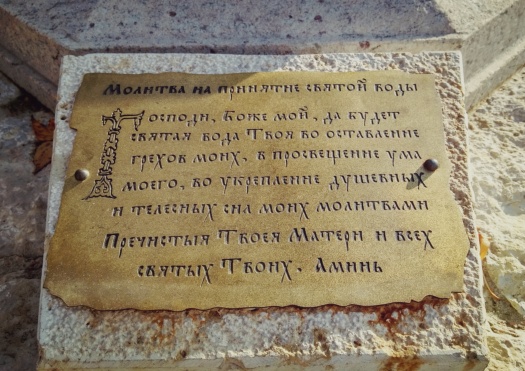 Молитва на принятие святой воды
Господи, Боже мой, да будет
святая вода Твоя во оставление
грехов моих, в просвещение ума
моего, во укрепление душевных
и телесных сил моих молитвами
Пречистыя Твоея Матери и всех
святых Твоих. Аминь